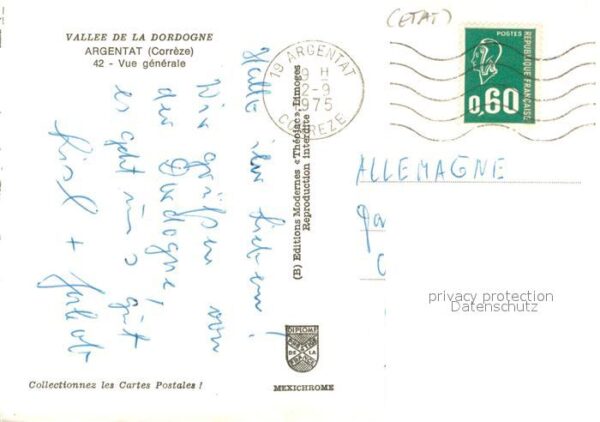 VALLEE DE LA DORDOGNE
ARGENTAT (Corrèze)
42 - Vue générale
Hallo ihr Lieben!
Wir grüßen von
der Dordogne!
es geht uns gut
+
Collectionnez les Cartes Postales !
(B) Editions Modernes « Théojac », Limoges
Reproduction interdite
DIPLOME
DE LA
FRANCE
MEXICHROME
19 ARGENTAT
9 H
2-9
1975
CORREZE
(ETAT)
POSTES
0,60
REPUBLIQUE FRANÇAISE
ALLEMAGNE
privacy protection
Datenschutz